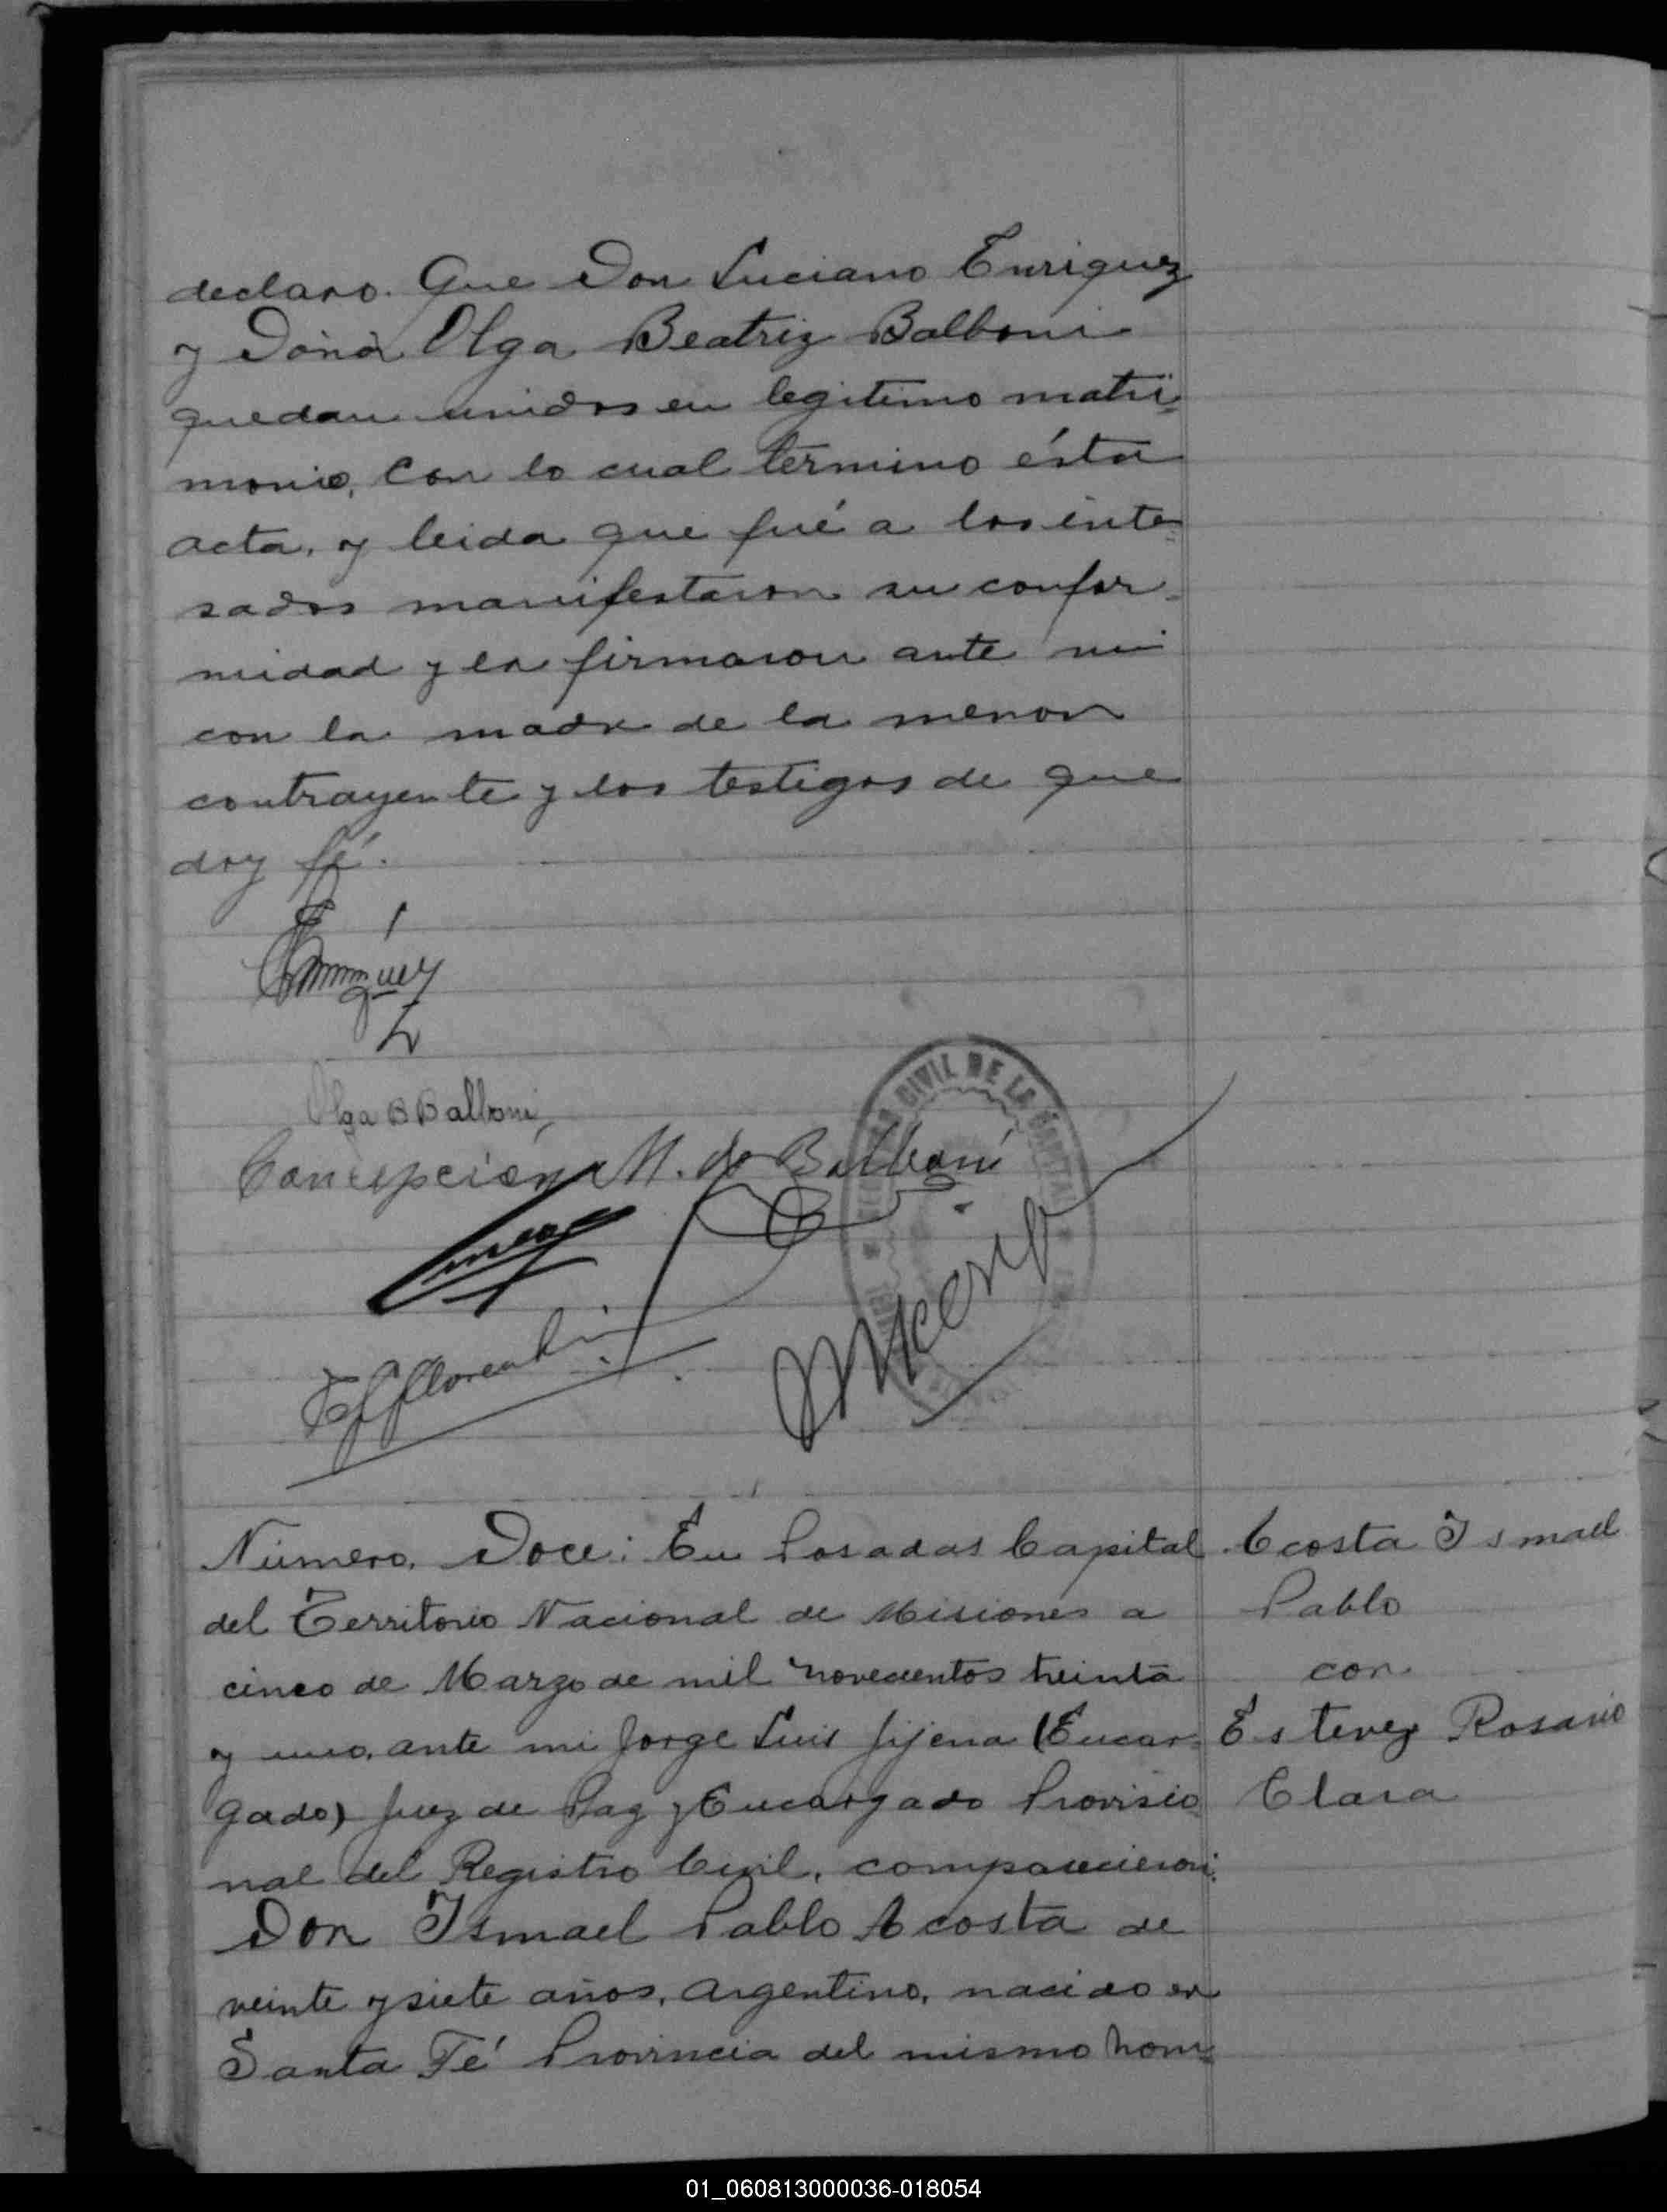 declaro. Que Don Luciano Enriquez
y Doña Olga Beatriz Balboni
quedan unidos en legitimo matri-
monio, Con lo cual termino ésta
acta, y leida que fué a los inte-
sados manifestaron su confor-
midad y la firmaron ante mi
con la madre de la menor
contrayente y los testigos de que
doy fé.
Olga B Balboni
Concepción M. de Balboni
CIVIL DE LA CAPITAL
Número, Doce: En Posadas Capital
del Territorio Nacional de Misiones a
cinco de Marzo de mil novecientos treinta
y uno, ante mi Jorge Luis Jijena (Encar-
gado) Juez de Paz y Encargado Provisio-
nal del Registro Civil, comparecieron:
Don Ismael Pablo Acosta de
veinte y siete años, argentino, nacido en
Santa Fé Provincia del mismo nom-
Acosta Ismael
Pablo
con
Estevez Rosario
Clara
01_060813000036-018054